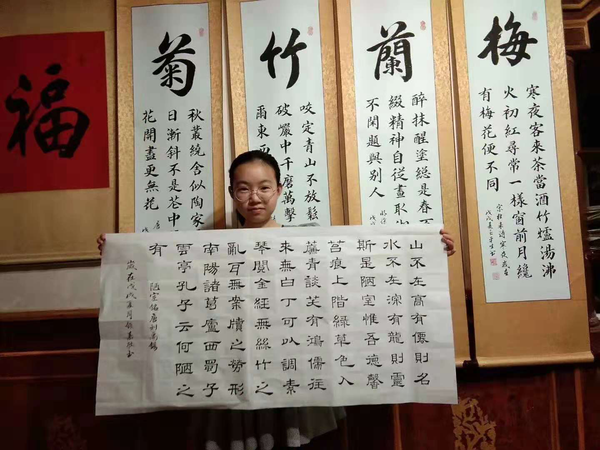 梅
寒夜客來茶當酒竹爐湯沸
火初紅尋常一樣窗前月纔
有梅花便不同
蘭
醉抹醒塗總是春
綴精神自從畫取
不閑題與別人
竹
咬定青山不放鬆
破巖中千磨萬擊
爾東
菊
秋叢繞舍似陶家
日漸斜不是花中
花開盡更無花
福
山不在高有僊則名
水不在深有龍則靈
斯是陋室惟吾德馨
苔痕上階緑草色入
簾青談笑有鴻儒往
來無白丁可以調素
琴閱金經無絲竹之
亂耳無案牘之勞形
南陽諸葛廬西蜀子
雲亭孔子云何陋之
有
陋室銘唐劉禹錫
歲在戊戌年月